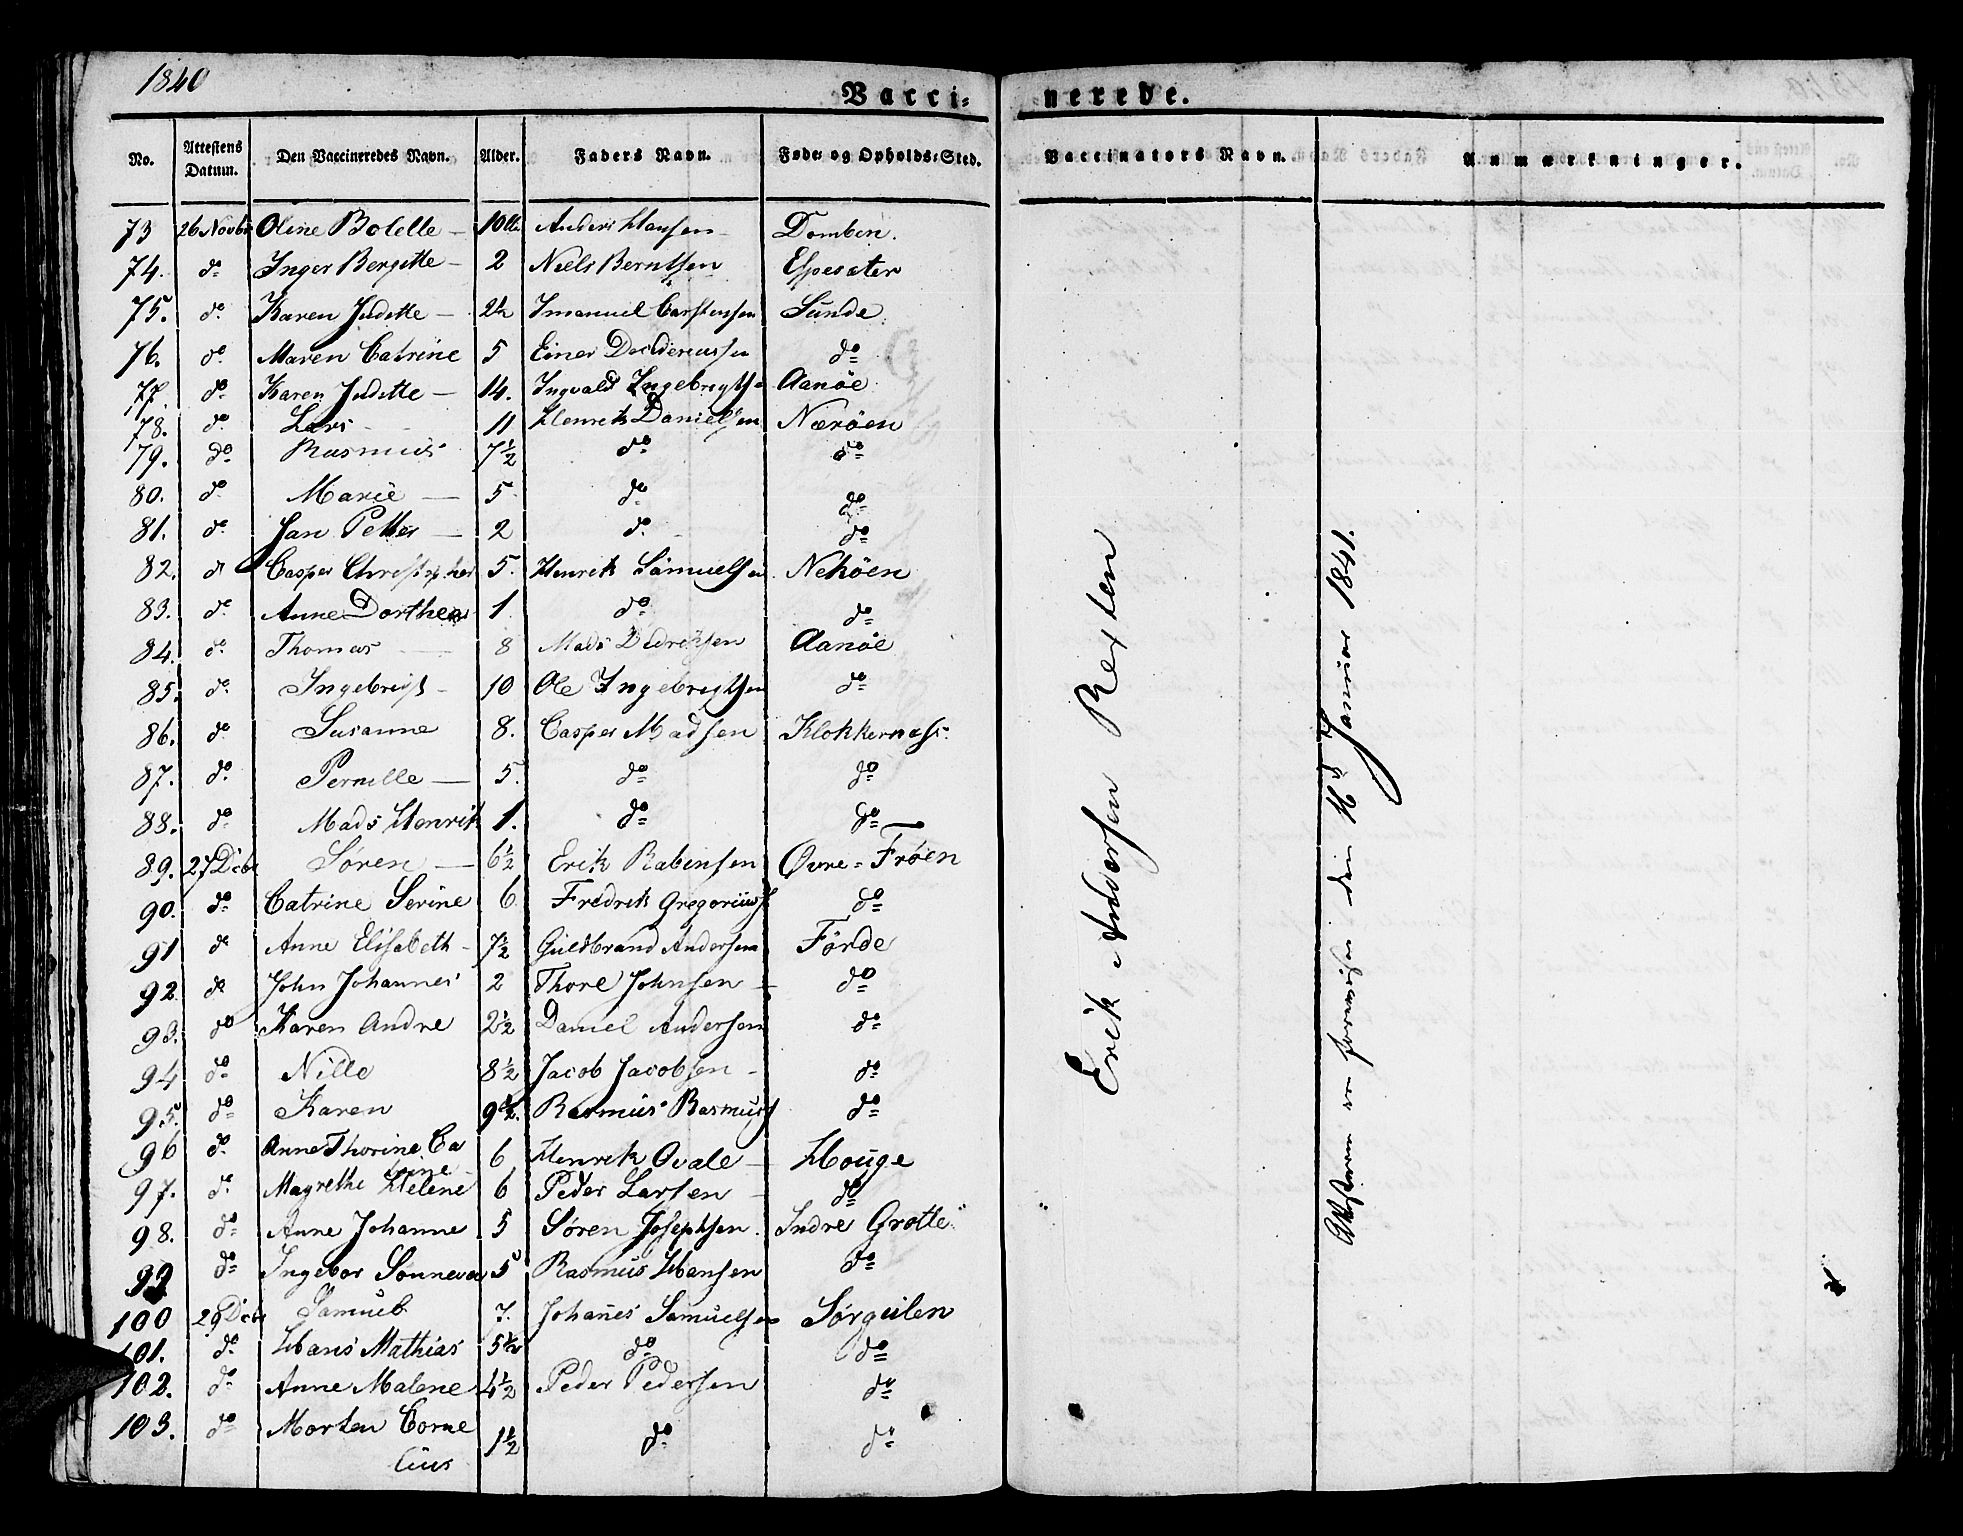 1840
Vacci-nerede.
No. Attestens Datum. Den Vaccineredes Navn. Alder. Faders Navn. Føde- og Opholds-Sted. Vaccinators Navn. Anmærkninger.
73 26 Novbr Oline Bolette — Anders Hansen Domben.
74. do Inger Bergette — 2 Niels Berntsen Espesæter
75. do Karen Judette — 2½ Imanuel Carstensen Sunde
76. do Maren Catrine 5 Einer do
77. do Karen Judette — 14. Ingvald Ingebrigts Aanöe
78. do Lars 11 Henrik Danielsen Næröen
79. do Rasmus 7½ do do
80. do Marie — 5 do do
81. do Jan Petter — 2 do do
82. do Casper Christopher 5. Henrik Samuelsen Neköen
83. do Anne Dorthea 1 do do
84. do Thomas 8 Mads Didrichsen Aanöe
85. do Ingebrigt 10 Ole Ingebrigtsen do
86. do Susanne 8. Casper Madsen Klokkernæss
87. do Pernille — 5. do do
88. do Mads Henrik 1. do do
89. 27 Dcbr Søren — 6½ Erik Rabensen Øvre-Frøen
90. do Catrine Serine 6 Fredrik Gregoriuss do
91 do Anne Elisabeth 7½ Guldbrand Andersen Förde
92. do John Johannes 2 Thore Johnsen — do
93. do Karen Andre 2½ Daniel Andersen do
94 do Nille 8½ Jacob Jacobsen do
95. do Karen 9½. Rasmus Rasmuss do
96 do Anne Thorine Ca
trine 6 Henrik Ovale — Houge
97. do Magrethe Helene 6 Peder Larsen do
98. do Anne Johanne 5 Søren Josephsen Indre Grotle
99 do Ingebor Sønneva 5 Rasmus Hansen do
100 29 Dcbr Samuel 7. Johanes Samuelsen Sørgulen
101. do Hans Mathias 5½ do do
102. do Anne Malene 4½ Peder Pedersen do
103. do Morten Corne
lius 1½ do do
Erik Andersen Rexten
Attesterne ere den Januar 1841.